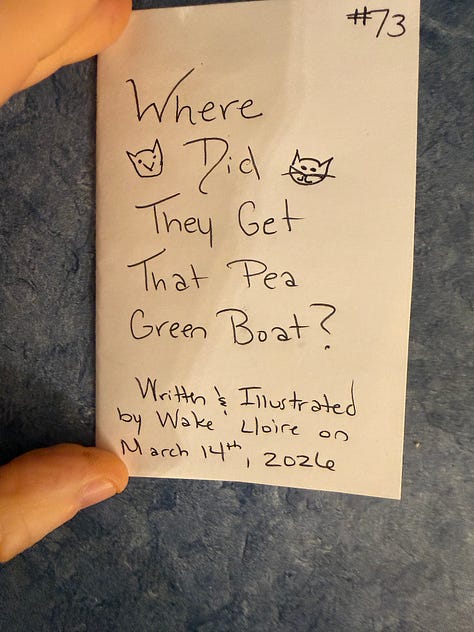 #73
Where
Did
They Get
That Pea
Green Boat?
Written & Illustrated
by Wake Lloire on
March 14th, 2026